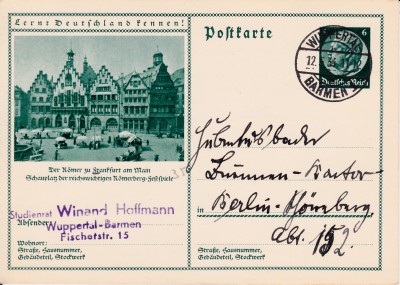 Lernt Deutschland kennen!
Postkarte
6
WUPPERTAL
12.
BARMEN
Deutsches Reich
Der Römer zu Frankfurt am Main
Schauplatz der reichswichtigen Römerberg-Festspiele
Studienrat Winand Hoffmann
Absender:
Wuppertal-Barmen
Fischotstr. 15
Wohnort:
Straße, Hausnummer,
Gebäudeteil, Stockwerk
Brunnen-Kontor
in Berlin-Schöneberg
Abt. 152.
Straße, Hausnummer,
Gebäudeteil, Stockwerk